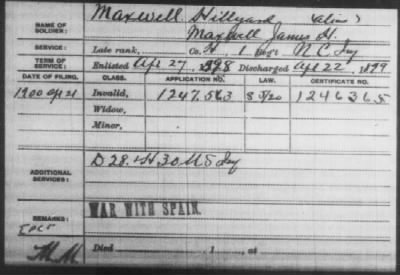 Maxwell, Hillyard (alias)
NAME OF SOLDIER: Maxwell James H.
SERVICE: Late rank, Co. H, 1 Reg't N C Inf
TERM OF SERVICE: Enlisted Apl 27, 1898 Discharged Apl 22, 1899
DATE OF FILING. CLASS. APPLICATION NO. LAW. CERTIFICATE NO.
1900 Apl 21 Invalid, 1247.563 1246365
Widow,
Minor,
ADDITIONAL SERVICES: D 28. & H 30 U S Inf
WAR WITH SPAIN.
REMARKS:
Died , 1 , at